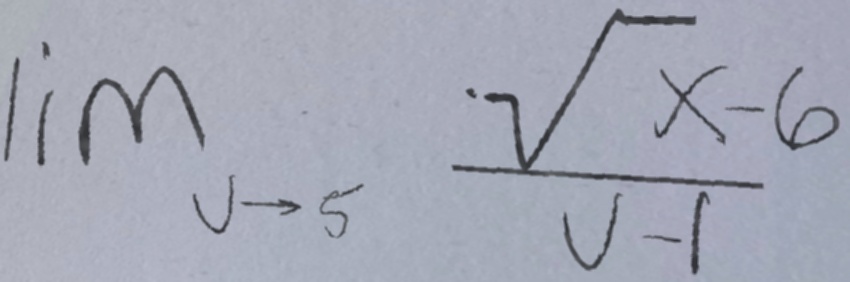 lim_{v→5} \frac{\sqrt{x}-6}{v-1}